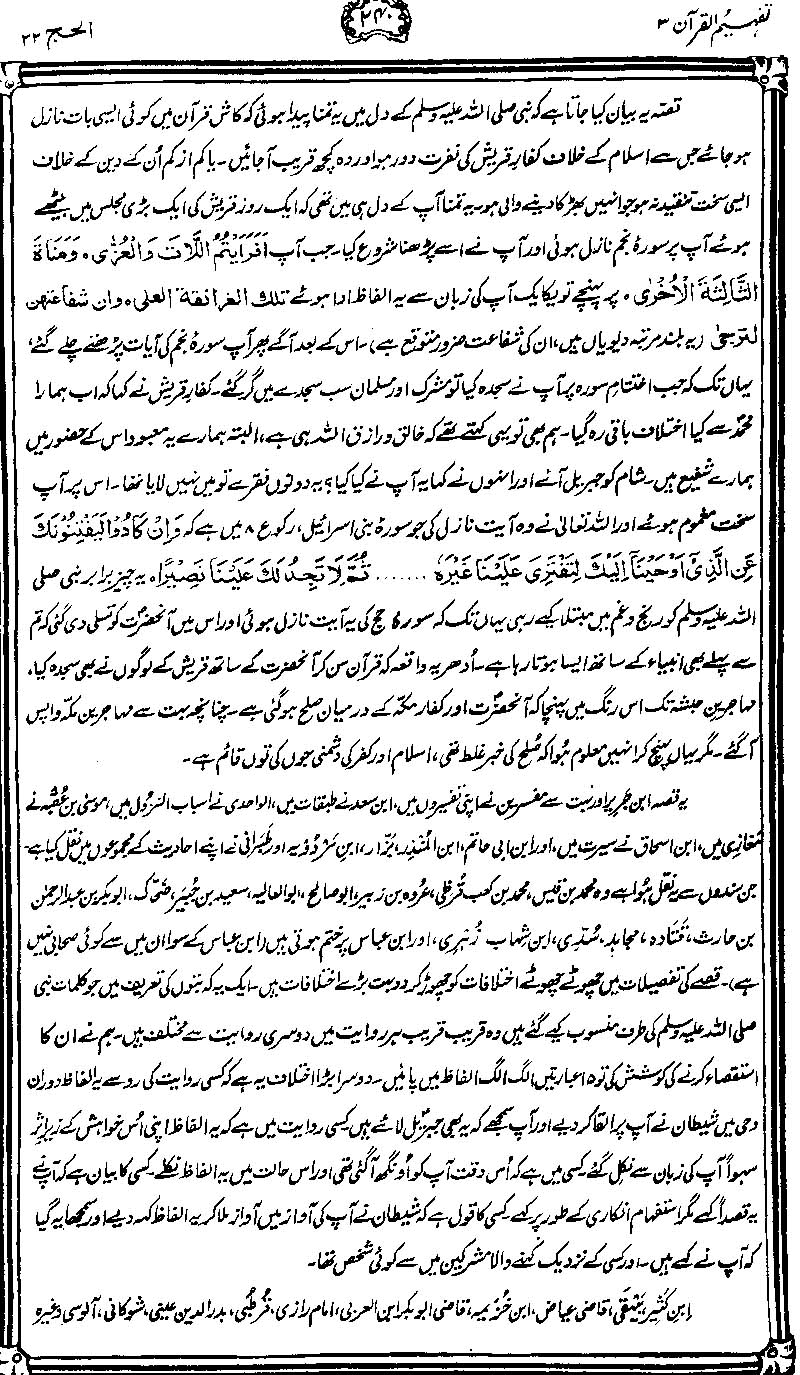 تفہیم القرآن ۳
۲۴۰
الحج ۲۲
قصہ یہ بیان کیا جاتا ہے کہ نبی صلی اللہ علیہ وسلم کے دل میں یہ تمنا پیدا ہوئی کہ کاش قرآن میں کوئی ایسی بات نازل
ہو جائے جس سے اسلام کے خلاف کفار قریش کی نفرت دور ہو اور وہ کچھ قریب آجائیں۔ یا کم از کم اُن کے دین کے خلاف
ایسی سخت تنقید نہ ہو جو انہیں بھڑکا دینے والی ہو۔ یہ تمنا آپ کے دل ہی میں تھی کہ ایک روز قریش کی ایک بڑی مجلس میں بیٹھے
ہوئے آپ پر سورۂ نجم نازل ہوئی اور آپ نے اسے پڑھنا شروع کیا۔ جب آپ اَفَرَاَیْتُمُ اللَّاتَ وَالْعُزّٰی، وَمَنَاۃَ
الثَّالِثَۃَ الْاُخْرٰی، پر پہنچے تو یکایک آپ کی زبان سے یہ الفاظ ادا ہوئے تلك الغرانقة العلی، وان شفاعتهن
لترجیٰ (یہ بلند مرتبہ دیویاں ہیں، ان کی شفاعت ضرور متوقع ہے)۔ اس کے بعد آگے پھر آپ سورۂ نجم کی آیات پڑھتے چلے گئے،
یہاں تک کہ جب اختتام سورہ پر آپ نے سجدہ کیا تو مشرک اور مسلمان سب سجدے میں گر گئے۔ کفار قریش نے کہا کہ اب ہمارا
محمدؐ سے کیا اختلاف باقی رہ گیا۔ ہم بھی تو یہی کہتے تھے کہ خالق و رازق اللہ ہی ہے، البتہ ہمارے یہ معبود اس کے حضور میں
ہمارے شفیع ہیں۔ شام کو جبریل آئے اور انہوں نے کہا یہ آپ نے کیا کیا؟ یہ دونوں فقرے تو میں نہیں لایا تھا۔ اس پر آپ
سخت مغموم ہوئے اور اللہ تعالیٰ نے وہ آیت نازل کی جو سورۂ بنی اسرائیل، رکوع ۸ میں ہے کہ وَاِنْ کَادُوْا لَیَفْتِنُوْنَكَ
عَنِ الَّذِیْۤ اَوْحَیْنَاۤ اِلَیْكَ لِتَفْتَرِیَ عَلَیْنَا غَیْرَہٗ ....... ثُمَّ لَا تَجِدُ لَكَ عَلَیْنَا نَصِیْرًا، یہ چیز برابر نبی صلی
اللہ علیہ وسلم کو رنج و غم میں مبتلا کیے رہی یہاں تک کہ سورۂ حج کی یہ آیت نازل ہوئی اور اس میں آنحضرتؐ کو تسلی دی گئی کہ تم
سے پہلے بھی انبیاء کے ساتھ ایسا ہوتا رہا ہے۔ اُدھر یہ واقعہ کہ قرآن سن کر آنحضرتؐ کے ساتھ قریش کے لوگوں نے بھی سجدہ کیا،
مہاجرین حبشہ تک اس رنگ میں پہنچا کہ آنحضرتؐ اور کفار مکہ کے درمیان صلح ہو گئی ہے۔ چنانچہ بہت سے مہاجرین مکہ واپس
آگئے۔ مگر یہاں پہنچ کر انہیں معلوم ہوا کہ صُلح کی خبر غلط تھی، اسلام اور کفر کی دشمنی جوں کی توں قائم ہے۔
یہ قصہ ابن جریر اور بہت سے مفسرین نے اپنی تفسیروں میں، ابن سعد نے طبقات میں، الواحدی نے اسباب النزول میں، موسیٰ بن عُقبہ نے
مغازی میں، ابن اسحاق نے سیرت میں، اور ابن ابی حاتم، ابن المُنذِر، بزّار، ابن مَردُوْیہ اور طَبَرانی نے اپنے احادیث کے مجموعوں میں نقل کیا ہے۔
جن سندوں سے یہ نقل ہوا ہے وہ محمد بن قیس، محمد بن کعب قُرَظِی، عُروہ بن زبیر، ابو صالح، ابو العالیہ، سعید بن جُبَیر، ضحّاک، ابوبکر بن عبدالرحمٰن
بن حارث، قَتَادہ، مجاہد، سُدّی، ابن شہاب زُہری، اور ابن عباس پر ختم ہوتی ہیں (ابن عباس کے سوا ان میں سے کوئی صحابی نہیں
ہے)۔ قصے کی تفصیلات میں چھوٹے چھوٹے اختلافات کو چھوڑ کر دو بہت بڑے اختلافات ہیں۔ ایک یہ کہ بتوں کی تعریف میں جو کلمات نبی
صلی اللہ علیہ وسلم کی طرف منسوب کیے گئے ہیں وہ قریب قریب ہر روایت میں دوسری روایت سے مختلف ہیں۔ ہم نے ان کا
استقصاء کرنے کی کوشش کی تو ۱۵ عبارتیں الگ الگ الفاظ میں پائیں۔ دوسرا بڑا اختلاف یہ ہے کہ کسی روایت کی رو سے یہ الفاظ دوران
وحی میں شیطان نے آپ پر القا کر دیے اور آپ سمجھے کہ یہ بھی جبریل لائے ہیں۔ کسی روایت میں ہے کہ یہ الفاظ اپنی اُس خواہش کے زیر اثر
سہواً آپ کی زبان سے نکل گئے۔ کسی میں ہے کہ اُس وقت آپ کو اونگھ آگئی تھی اور اس حالت میں یہ الفاظ نکلے۔ کسی کا بیان ہے کہ آپ نے
یہ قصداً کہے مگر استفہام انکاری کے طور پر کہے۔ کسی کا قول ہے کہ شیطان نے آپ کی آواز میں آواز ملا کر یہ الفاظ کہہ دیے اور سمجھا یہ گیا
کہ آپ نے کہے ہیں۔ اور کسی کے نزدیک کہنے والا مشرکین میں سے کوئی شخص تھا۔
ابن کثیر، بیہقی، قاضی عیاض، ابن خزیمہ، قاضی ابوبکر ابن العربی، امام رازی، قُرطُبی، بدر الدین عینی، شوکانی، آلوسی وغیرہ